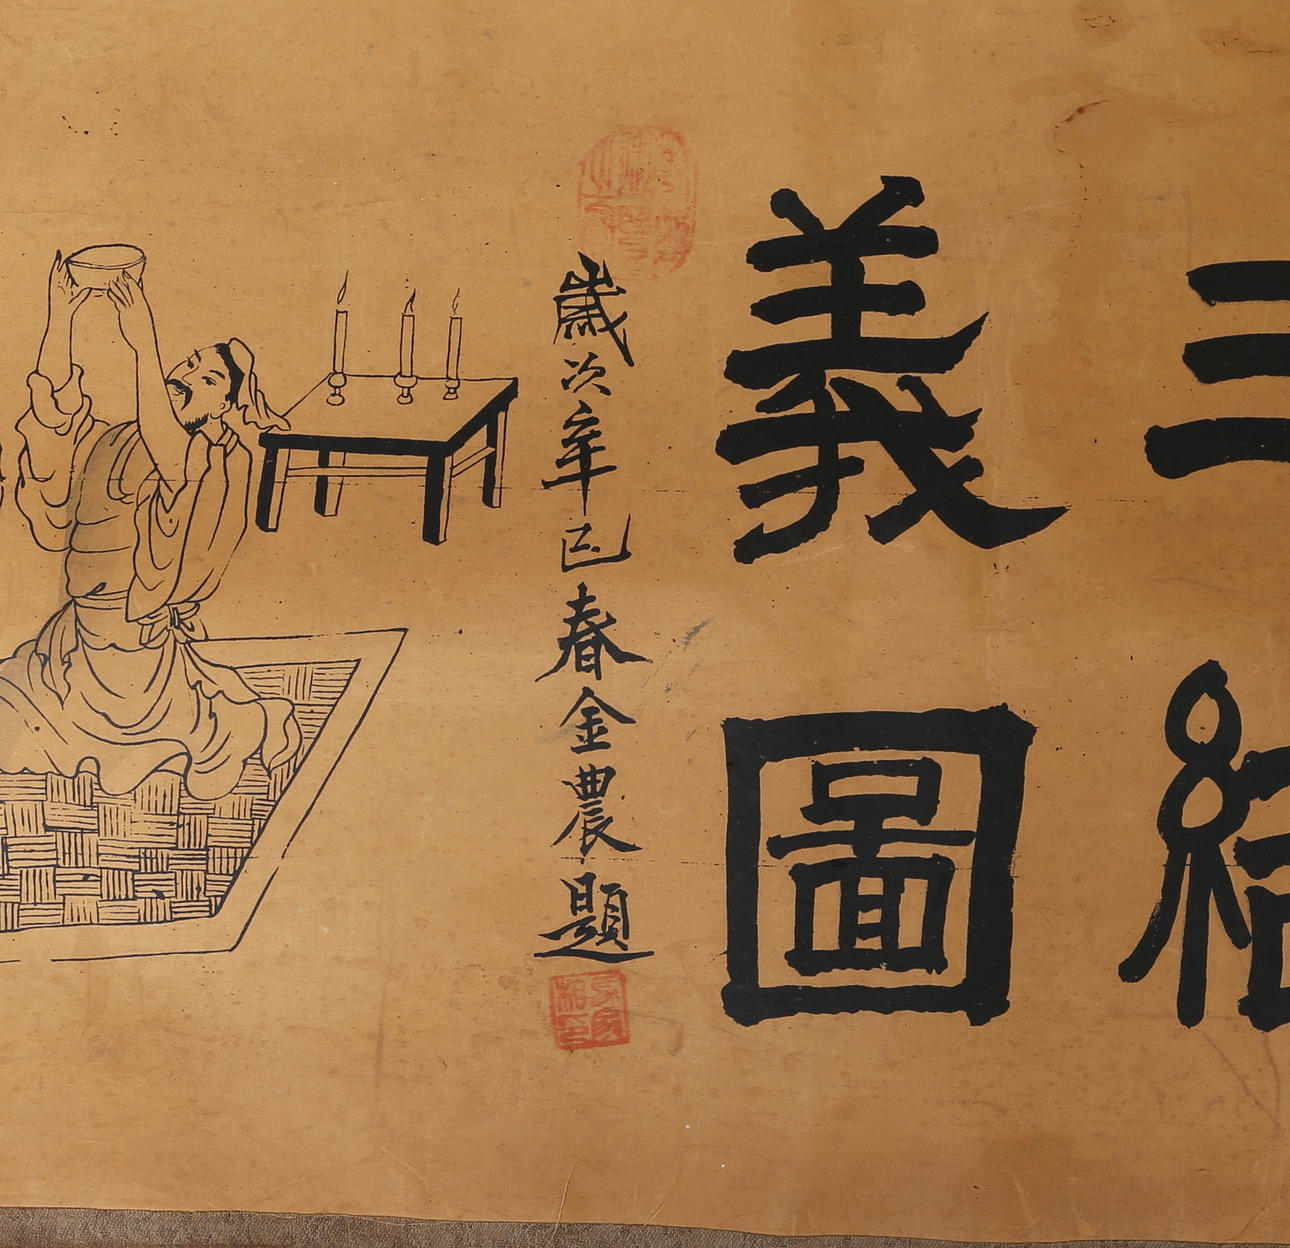 三結
義圖
歲次辛巳春金農題